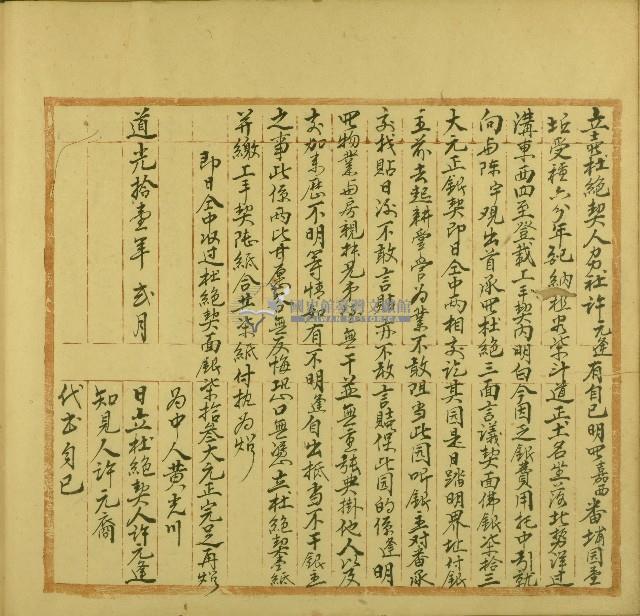 立賣杜絕契人男社許元逢有自己明買嘉西番埔园壹
坵受種六分年配納租粟柒斗道正土名坐落北勢洋过
溝東西四至登載上手契內明白今因乏銀費用托中引就
向与陈宇觀出首承買杜絕三面言議契面佛銀柒拾三
大元正銀契即日仝中兩相交訖其园是日踏明界址付銀
主前去起耕掌管為業不敢阻当此园听銀主对番承
交找貼日後不敢言贖亦不敢言贖保此园的係逢明
買物業与房親叔兄弟姪無干並無重張典掛他人以及
交加来歷不明等情如有不明逢自出抵当不干銀主
之事此係兩比甘愿各無反悔恐口無憑立杜絕契壹紙
并繳上手契陸紙合共柒紙付执為炤
即日仝中收过杜絕契面銀柒拾叁大元正完足再炤
為中人黄光川
道光拾壹年弍月 日立杜絕契人許元逢
知見人許元裔
代书自己
國史館臺灣文獻館